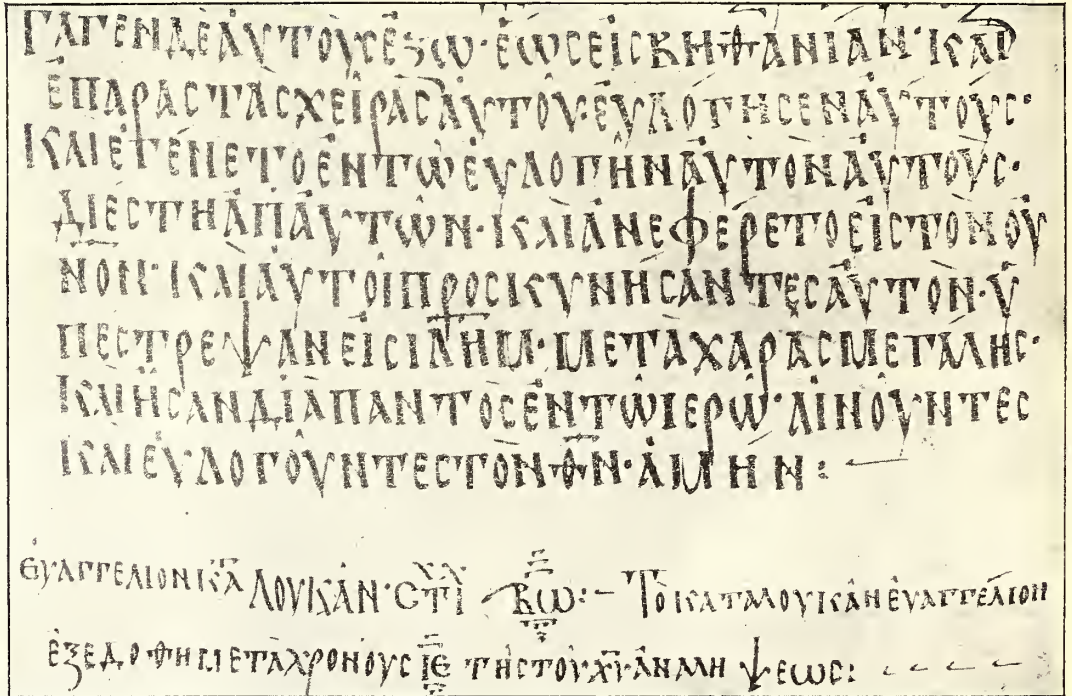 ΓΑΓΕΝΔΕΑΥΤΟΥΣΕΞΩ· ΕΩΣΕΙΣΒΗΘΑΝΙΑΝ· ΚΑΙ
ΕΠΑΡΑΣΤΑΣΧΕΙΡΑΣΑΥΤΟΥ· ΕΥΛΟΓΗΣΕΝΑΥΤΟΥΣ·
ΚΑΙΕΓΕΝΕΤΟΕΝΤΩΕΥΛΟΓΗΝΑΥΤΟΝΑΥΤΟΥΣ·
ΔΙΕΣΤΗΑΠΑΥΤΩΝ· ΚΑΙΑΝΕΦΕΡΕΤΟΕΙΣΤΟΝΟΥ
ΝΟΝ· ΚΑΙΑΥΤΟΙΠΡΟΣΚΥΝΗΣΑΝΤΕΣΑΥΤΟΝ· Υ
ΠΕΣΤΡΕΨΑΝΕΙΣΙΛΗΜ· ΜΕΤΑΧΑΡΑΣΜΕΓΑΛΗΣ·
ΚΑΙΗΣΑΝΔΙΑΠΑΝΤΟΣΕΝΤΩΙΕΡΩ· ΑΙΝΟΥΝΤΕΣ
ΚΑΙΕΥΛΟΓΟΥΝΤΕΣΤΟΝΘΝ· ΑΜΗΝ:
ΕΥΑΓΓΕΛΙΟΝΚΑΤΑ ΛΟΥΚΑΝ· ΣΤΙΧΧ ΒΩ:– ΤΟΚΑΤΑΛΟΥΚΑΝΕΥΑΓΓΕΛΙΟΝ
ΕΞΕΔΟΘΗΜΕΤΑΧΡΟΝΟΥΣ ΙΕ ΤΗΣΤΟΥΧΥΑΝΑΛΗΨΕΩΣ: